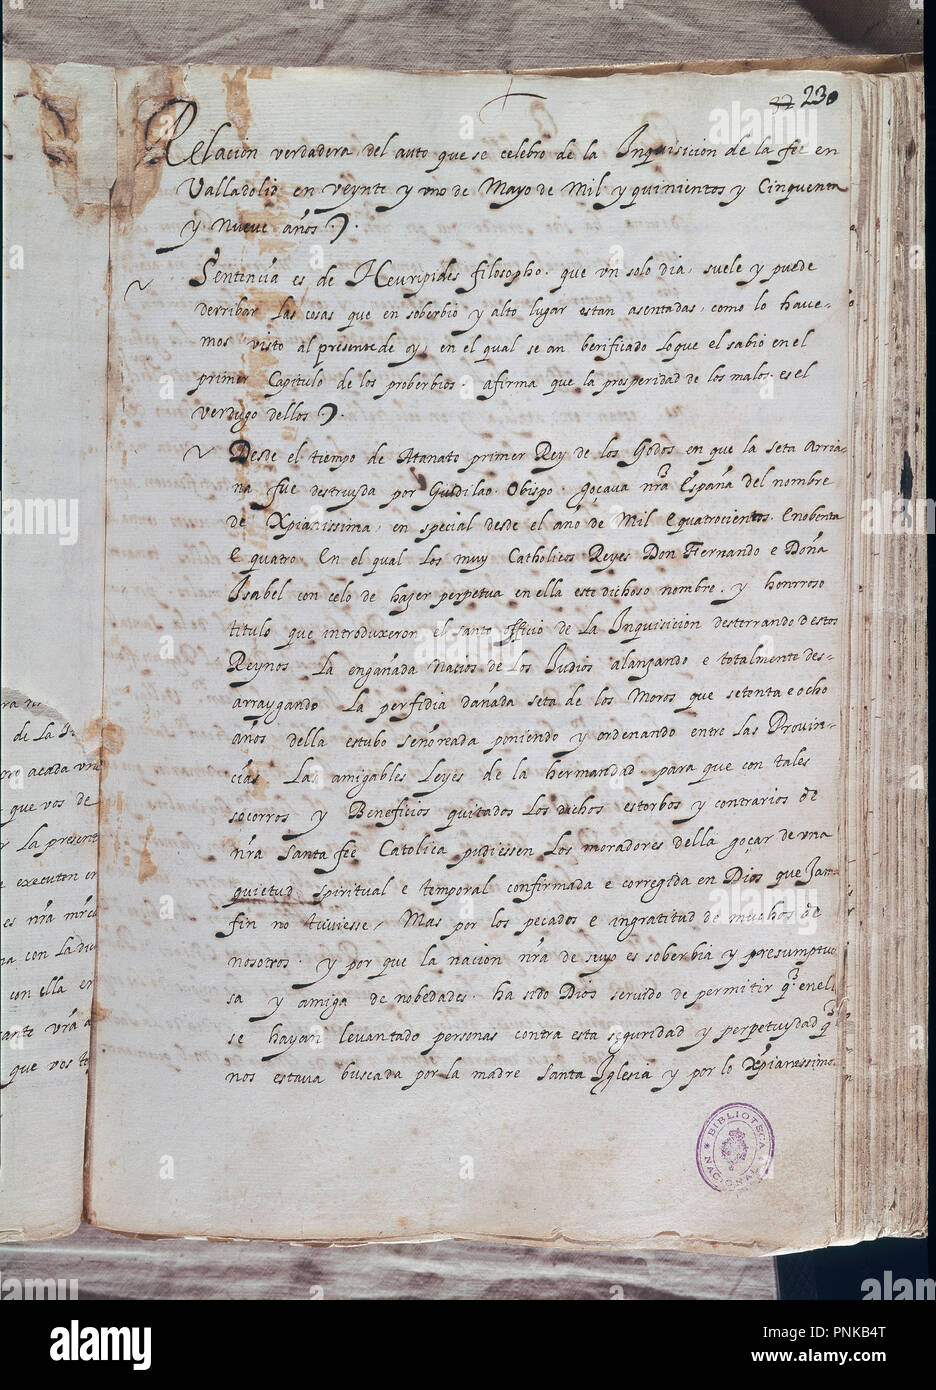 37 230
Relacion verdadera del auto que se celebro de la Inquisicion de la fee en
Valladolid en veynte y uno de Mayo de Mil y quinientos y Cinquenta
y Nueve años
Sentencia es de Heuripides filosopho. que un solo dia, suele y puede
derribar las cosas que en soberbio y alto lugar estan asentadas, como lo have-
mos visto al presente de oy, en el qual se an berificado lo que el sabio en el
primer Capitulo de los proberbios. afirma que la prosperidad de los malos. es el
verdugo dellos
Desde el tiempo de Atanato primer Rey de los Godos en que la seta Arria-
na fue destruyda por Guidilao Obispo. goçava nra España del nombre
de Xpianissima, en special desde el año de Mil e quatrocientos. e nobenta
e quatro. En el qual los muy Catholicos Reyes Don Fernando e Doña
Isabel con celo de hazer perpetua en ella este dichoso nombre. y honrroso
titulo que introduxeron el santo officio de la Inquisicion desterrando destos
Reynos la engañada nacion de los Judios alanzando e totalmente des-
arraygando la perfidia dañada seta de los Moros que setenta e ocho
años della estubo señoreada poniendo y ordenando entre las Provin-
cias. Las amigables Leyes de la hermandad para que con tales
socorros y Beneficios quitados los dichos estorbos y contrarios de
nra santa fee Catolica pudiessen los moradores della goçar de una
quietud spiritual e temporal confirmada e corregida en Dios que Jam-
fin no tuviesse, Mas por los pecados e ingratitud de muchos de
nosotros. y por que la nacion nra de suyo es soberbia y presumptuo
sa y amiga de nobedades. ha sido Dios servido de permitir q en ell
se hayan levantado personas contra esta seguridad y perpetuydad q
nos estava buscada por la madre santa Iglesia y por lo Xpianissimo
BIBLIOTECA NACIONAL
de la
acada
que vos de
La present
executen en
es nra
con la
con ella en
vra a
que vos
alamy
a
Image ID: PNKB4T
www.alamy.com